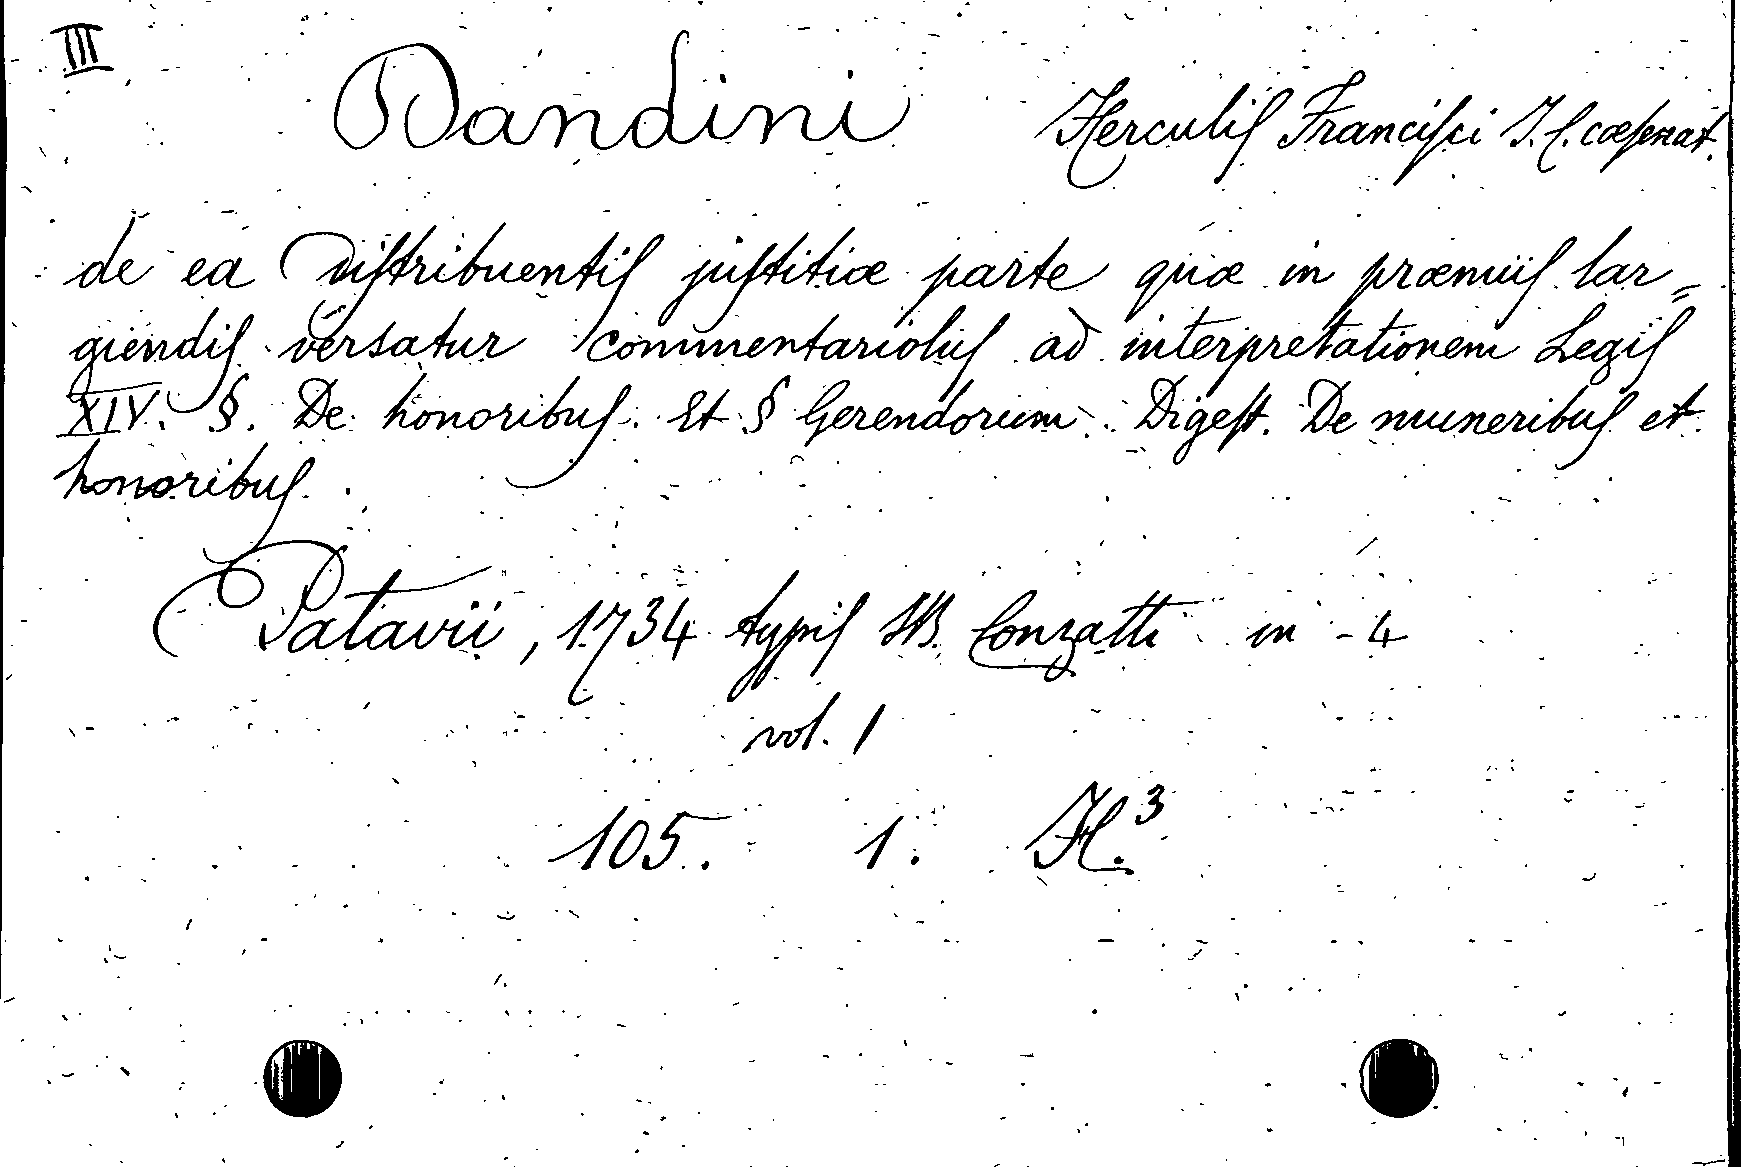 III
Dandini Herculiſ Franciſci J. C. cœſenat.
de ea diſtribuentiſ juſtitiæ parte quæ in præmiiſ lar=
giendiſ versatur commentarioluſ ad interpretationem Legiſ
XIV. §. De honoribuſ. Et § Gerendorum. Digeſt. De muneribuſ et
honoribuſ.
Patavii, 1734 typiſ JB. Conzatti in-4
vol. 1
105. 1. H.³